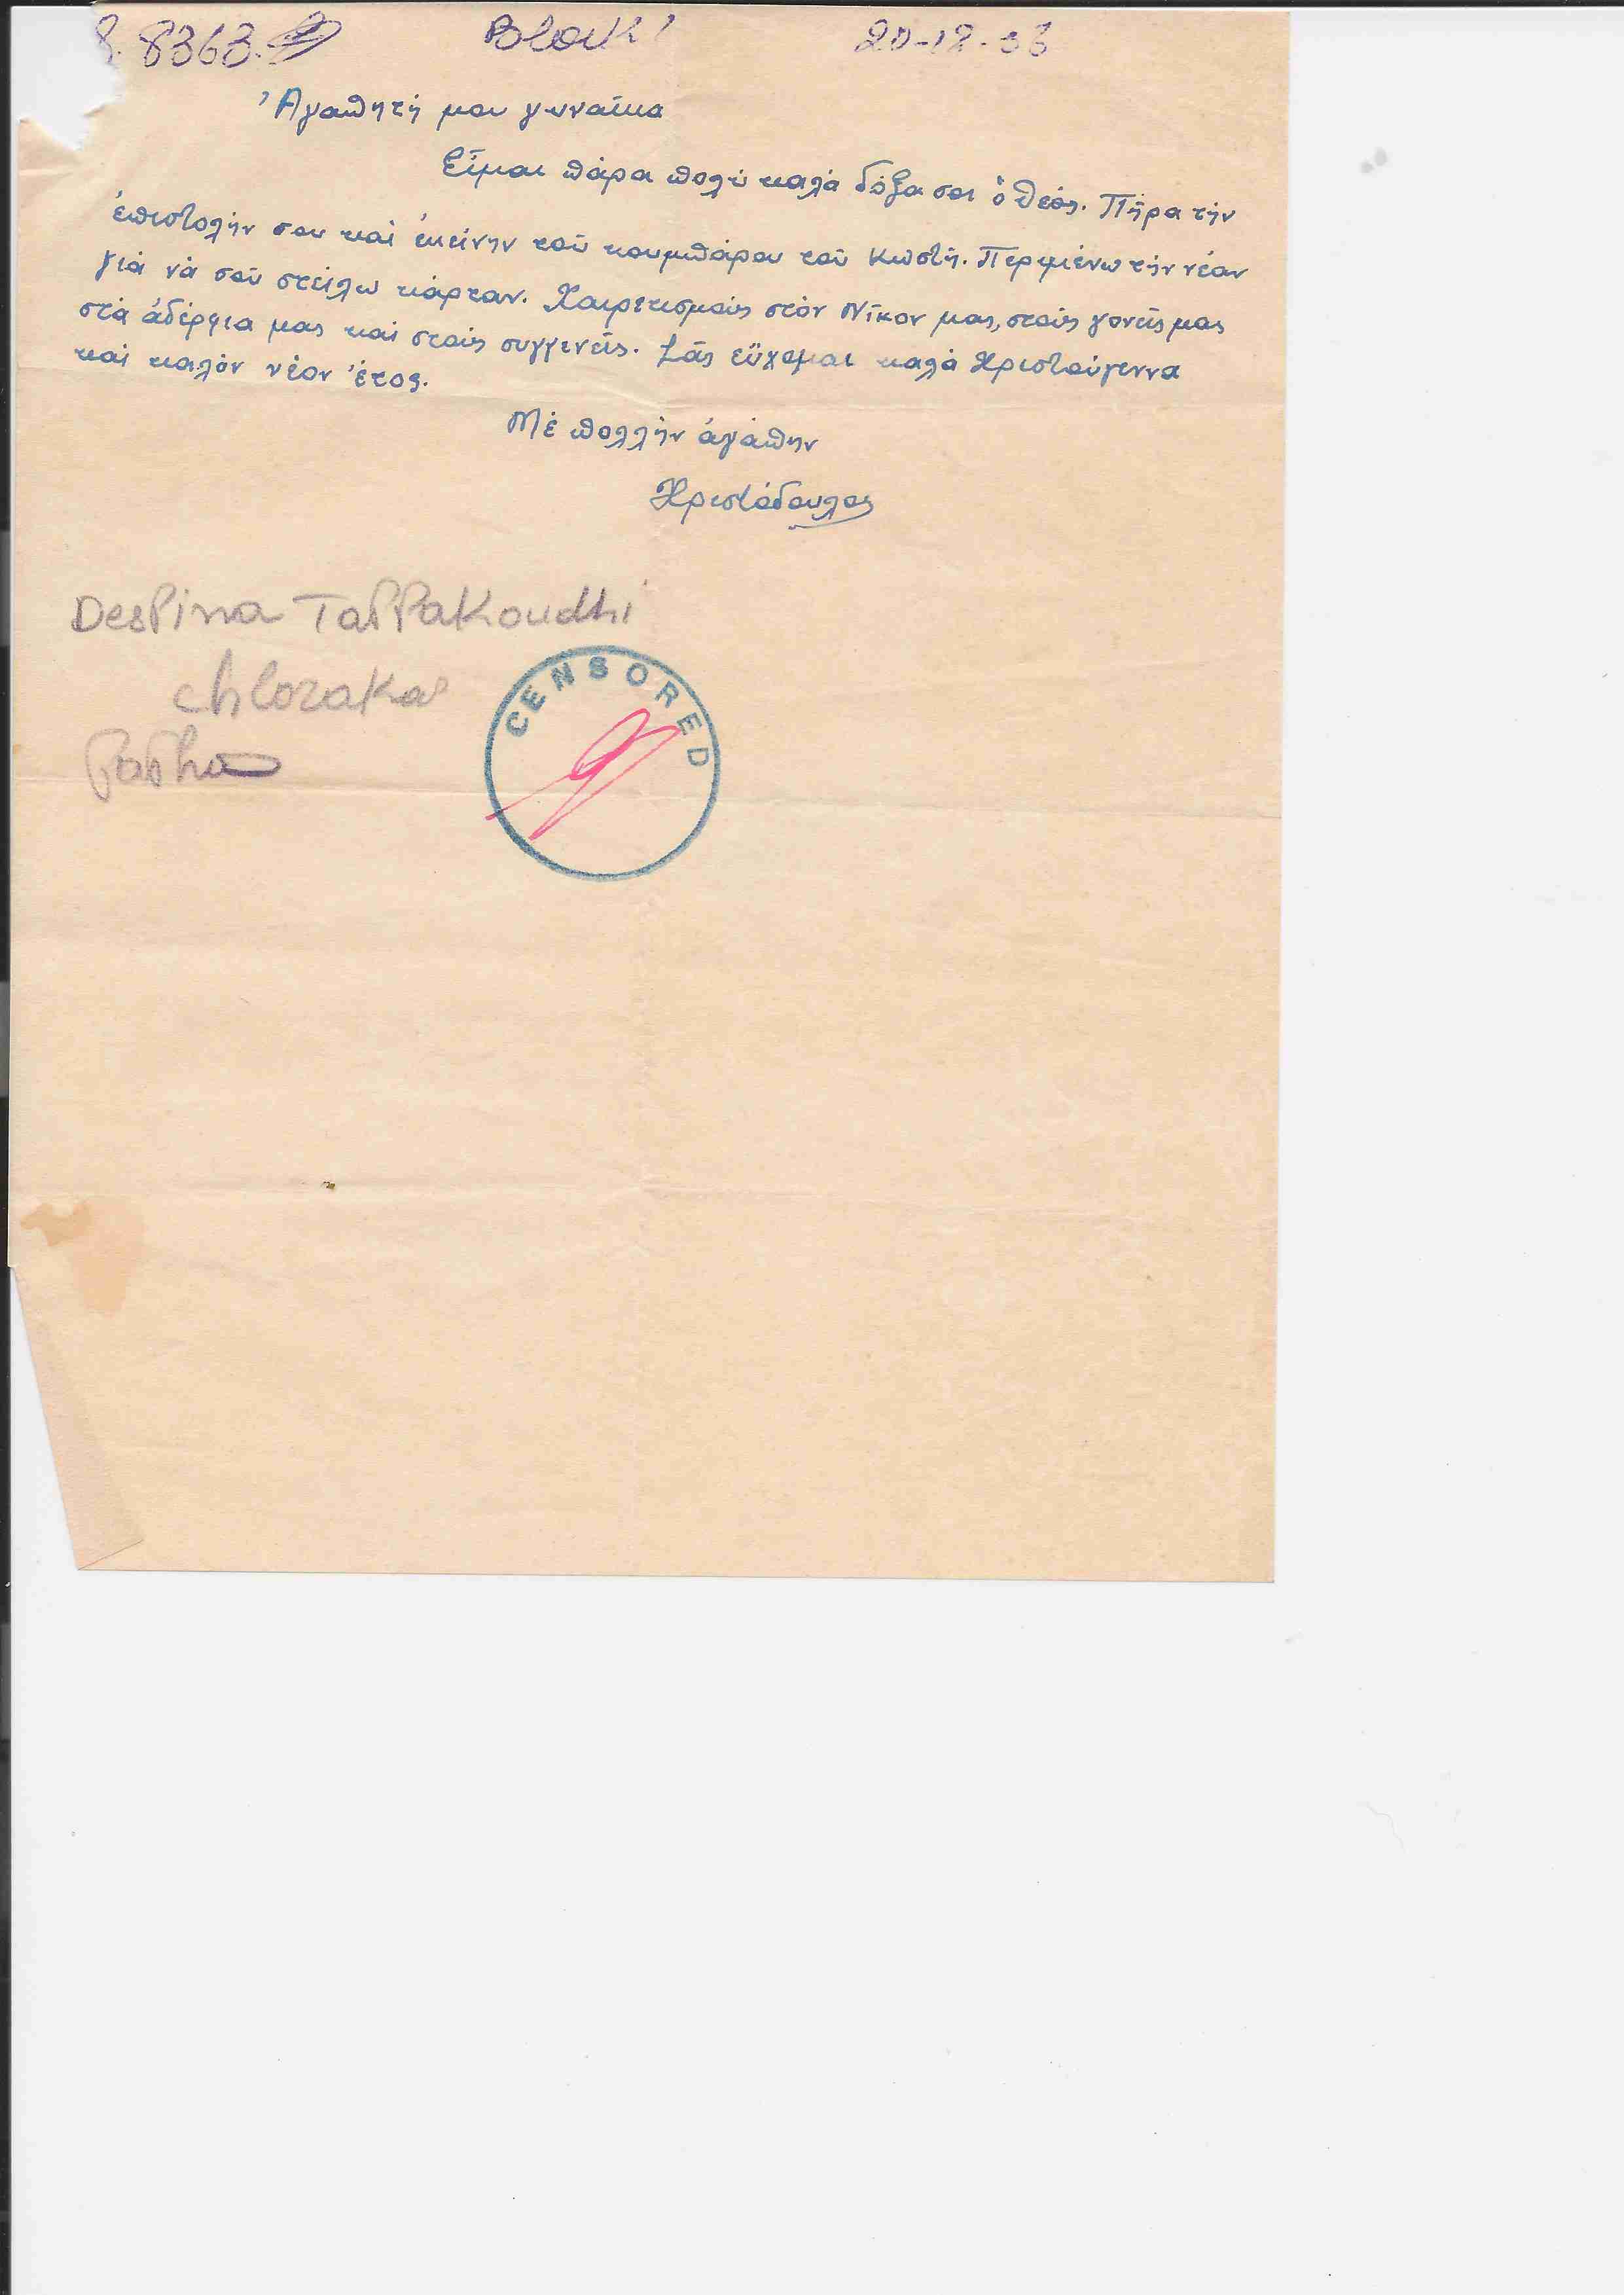 8363. Block 1 20-12-56
Ἀγαπητή μου γυναῖκα
Εἶμαι πάρα πολύ καλά δόξα σοι ὁ Θεός. Πῆρα τήν
ἐπιστολήν σου καί ἐκείνην τοῦ κουμπάρου τοῦ Κωστῆ. Περιμένω τήν νέαν
γιά νά σοῦ στείλω κάρταν. Χαιρετισμούς στόν Νῖκον μας, στούς γονεῖς μας
στά ἀδέρφια μας καί στούς συγγενεῖς. Σᾶς εὔχομαι καλά Χριστούγεννα
καί καλόν νέον ἔτος.
Μέ πολλήν ἀγάπην
Χριστόδουλος
Despina Tappakoudhi
CENSORED
chlorakas
Papho